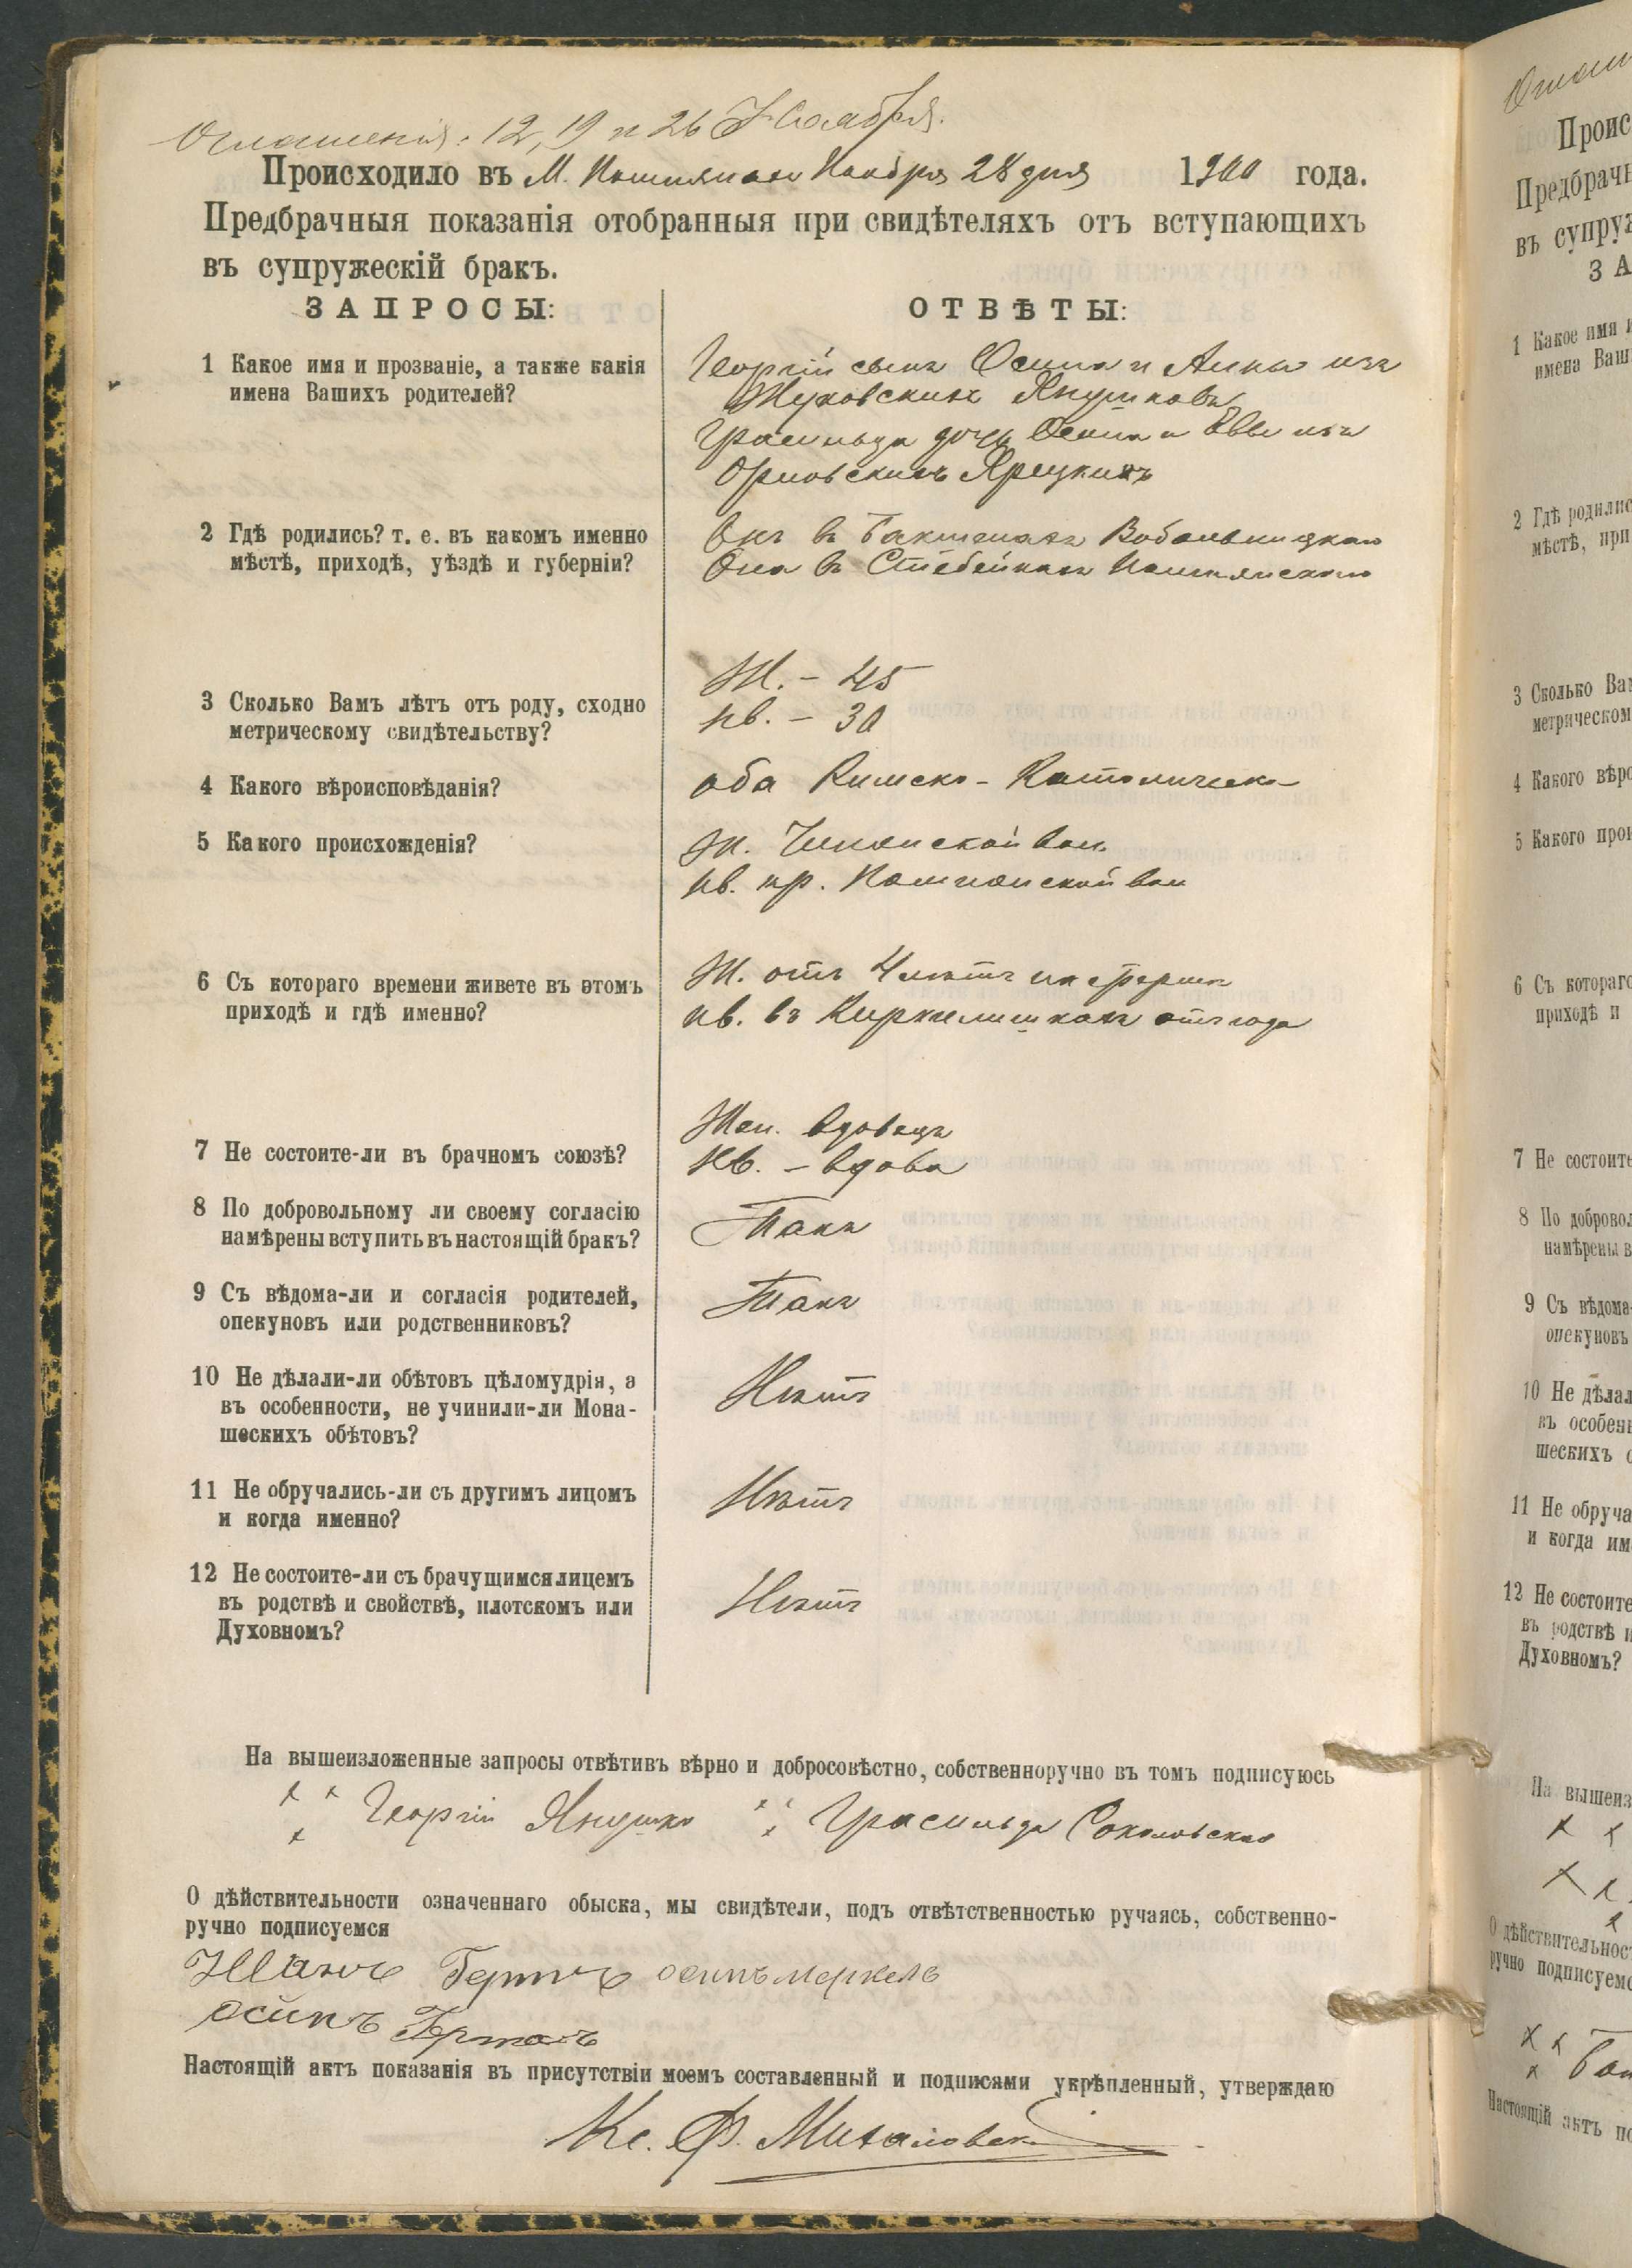 Оглашенія: 12, 19 и 26 Ноября.
Происходило въ М. Ноября 28 дня 1900 года.
Предбрачныя показанія отобранныя при свидѣтеляхъ отъ вступающихъ
въ супружескій бракъ.
ЗАПРОСЫ: ОТВѢТЫ:
1 Какое имя и прозваніе, а также какія
имена Вашихъ родителей?
Георгій сынъ Осипа и Анны изъ
Жуковскихъ Янушковъ
Грасильда дочь Осипа и Евы изъ
Орловскихъ Ярецкихъ
2 Гдѣ родились? т. е. въ какомъ именно
мѣстѣ, приходѣ, уѣздѣ и губерніи?
Онъ въ Вобольницкаго
Она въ
3 Сколько Вамъ лѣтъ отъ роду, сходно
метрическому свидѣтельству?
Ж. – 45
Нв. – 30
4 Какого вѣроисповѣданія?
оба Римско-Католическо
5 Какого происхожденія?
Ж. вол.
Нв. кр. вол
6 Съ котораго времени живете въ этомъ
приходѣ и гдѣ именно?
Ж. отъ 4 лѣтъ на фермѣ
Нв. въ отъ года
7 Не состоите-ли въ брачномъ союзѣ?
Жен. вдовецъ
Нв. – вдова
8 По добровольному ли своему согласію
намѣрены вступить въ настоящій бракъ?
Такъ
9 Съ вѣдома-ли и согласія родителей,
опекуновъ или родственниковъ?
Такъ
10 Не дѣлали-ли обѣтовъ цѣломудрія, а
въ особенности, не учинили-ли Мона-
шескихъ обѣтовъ?
Нѣтъ
11 Не обручались-ли съ другимъ лицомъ
и когда именно?
Нѣтъ
12 Не состоите-ли съ брачущимся лицемъ
въ родствѣ и свойствѣ, плотскомъ или
Духовномъ?
Нѣтъ
На вышеизложенные запросы отвѣтивъ вѣрно и добросовѣстно, собственноручно въ томъ подписуюсь
х х х Георгій Янушко х х х Грасильда Соколовская
О дѣйствительности означеннаго обыска, мы свидѣтели, подъ отвѣтственностью ручаясь, собственно-
ручно подписуемся
осипъ меркель
осипъ
Настоящій актъ показанія въ присутствіи моемъ составленный и подписями укрѣпленный, утверждаю
Кс. Ф.
Проис
Предбрачн
въ супруж
ЗА
1 Какое имя и
имена Ваш
2 Гдѣ родились
мѣстѣ, при
3 Сколько Вам
метрическом
4 Какого вѣро
5 Какого прои
6 Съ котораго
приходѣ и
7 Не состоите
8 По доброволь
намѣрены в
9 Съ вѣдома-
опекуновъ
10 Не дѣлал
въ особенн
шескихъ о
11 Не обруча
и когда им
12 Не состоите
въ родствѣ и
Духовномъ?
На вышеиз
О дѣйствительнос
ручно подписуемс
Настоящій актъ по